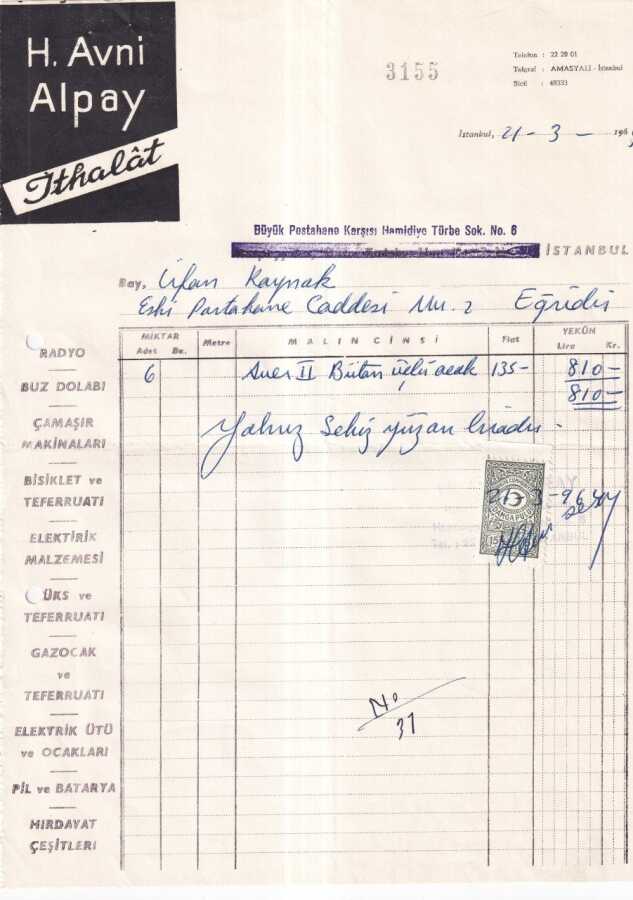 H. Avni
Alpay
İthalât
3155
Telefon : 22 20 01
Telgraf : AMASYALI - İstanbul
Sicil : 48333
İstanbul, 21 - 3 - 196
Büyük Postahane Karşısı Hamidiye Türbe Sok. No. 6
İSTANBUL
Bay, İrfan Kaynak
Eski Postahane Caddesi Nu. 2 Eğridir
MİKTAR
Adet
Metre
MALIN CİNSİ
Fiat
YEKÛN
Lira Kr.
6 II Bütan üçlü ocak 135- 810-
810-
Yalnız Sekiz yüzon liradır.
RADYO
BUZ DOLABI
ÇAMAŞIR
MAKİNALARI
BİSİKLET ve
TEFERRUATI
ELEKTİRİK
MALZEMESİ
LÜKS ve
TEFERRUATI
GAZOCAK
ve
TEFERRUATI
ELEKTRİK ÜTÜ
ve OCAKLARI
PİL ve BATARYA
HIRDAVAT
ÇEŞİTLERİ
DAMGA PULU
21-3-964
No
37